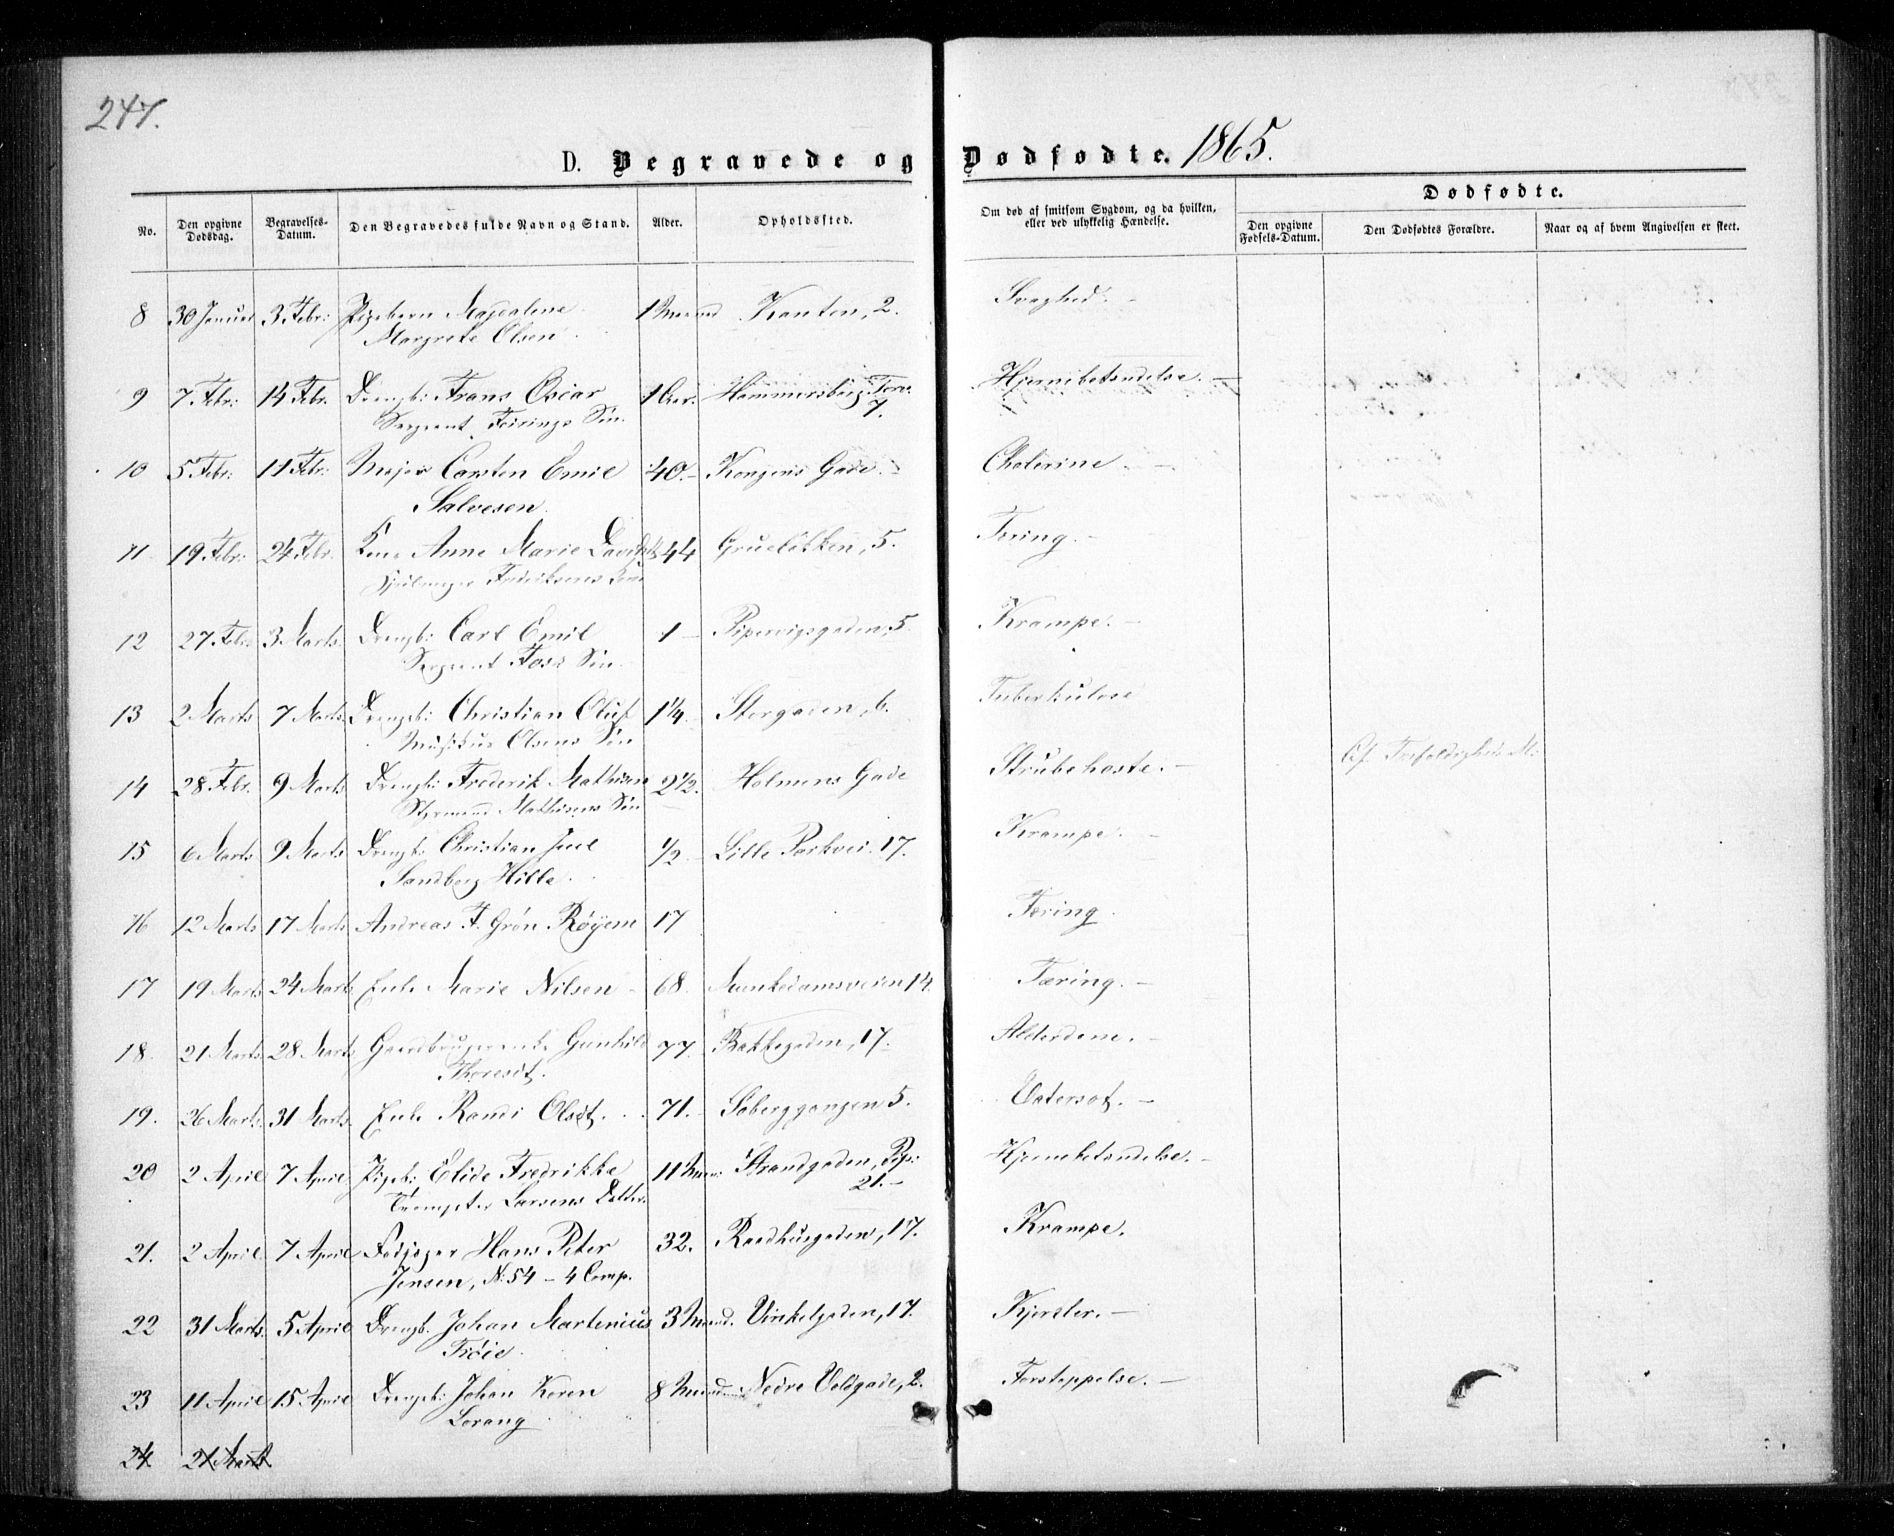 247.
D. Begravede og Dødfødte. 1865.
No. Den opgivne Dødsdag. Begravelses-Datum. Den Begravedes fulde Navn og Stand. Alder. Opholdssted. Om død af smitsom Sygdom, og da hvilken, eller ved ulykkelig Hændelse. Dødfødte.
Den opgivne Fødsels-Datum. Den Dødfødtes Forældre. Naar og af hvem Angivelsen er skeet.
8 30 Januar 3 Febr: Pigebarn Magdalene 1 Maaned Kanton, 2. Svaghed. —
Margrete Olsen
9 7. Febr: 14 Febr. Drengb: Frans Oscar 1 Aar. Hammersborg Torv. 7. Hjernebetændelse. —
Sergeant Feirings Søn.
10 5 Febr: 11 Febr: Major Carsten Emil 40. — Kongens Gade. Cholerine. —
Salvesen.
11 19 Febr: 24 Febr. Kone Anne Marie Davidsd. 44 Grueløkken, 5. Tæring. —
Fredriksens Kone
12 27 Febr. 3 Marts. Drengb: Carl Emil 1 — Pipervigsgaden, 5. Krampe. —
Sergeant Foss Søn.
13 2 Marts 7 Marts. Drengeb: Christian Oluf 1 1/4. Storgaden, 6. Tuberkulose
Musikus Olsens Søn
14 28 Febr. 9 Marts Drengb: Frederik Mathisen 2 1/2. Holmens Gade Strubehoste. — Cf. Trefoldigheds M:
Styrmand Mathisens Søn
15 6 Marts 9 Marts Drengb: Christian Juel 1/2 Lille Parkvei. 17. Krampe. —
Sandberg Hille.
16 12 Marts 17 Marts Andreas F. Grøn Røyem 17 Tæring.
17 19 Marts 24 Marts Enke Marie Nilsen 68. Munkedamsveien 14. Tæring. —
18. 21 Marts 28 Marts Gaardbrugerenke Gunhild 77. Bakkegaden, 17. Alderdom. —
Thoresdt.
19. 26 Marts. 31 Marts. Enke Randi Olsdt. 71. — Søberggangen 5. Vatersot. —
20 2 April 7 April Pigeb: Elide Fredrikke 11 Maan: Strandgaden, Pip: 21. — Hjernebetændelse. —
Trompeter Larsens Datter.
21. 2 April 7 April Fodjæger Hans Peter 32. Raadhusgaden, 17. Krampe.
Jensen, N. 54 – 4 Comp.
22 31 Marts. 5 April Drengb. Johan Martenius 3 Maaned. Vinkelgaden, 17. Kjertler. —
Trøie.
23 11 April 15 April Drengeb: Johan Koren 8 Maaned Nedre Voldgade, 2. Forstoppelse. —
Lorang
24. 21 Marts.